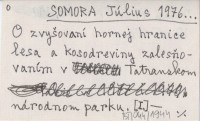 0
SOMORA Július 1976...
O zvyšovaní hornej hranice
lesa a kosodreviny zalesňo-
vaním v Tatranskom
národnom parku. [I]—